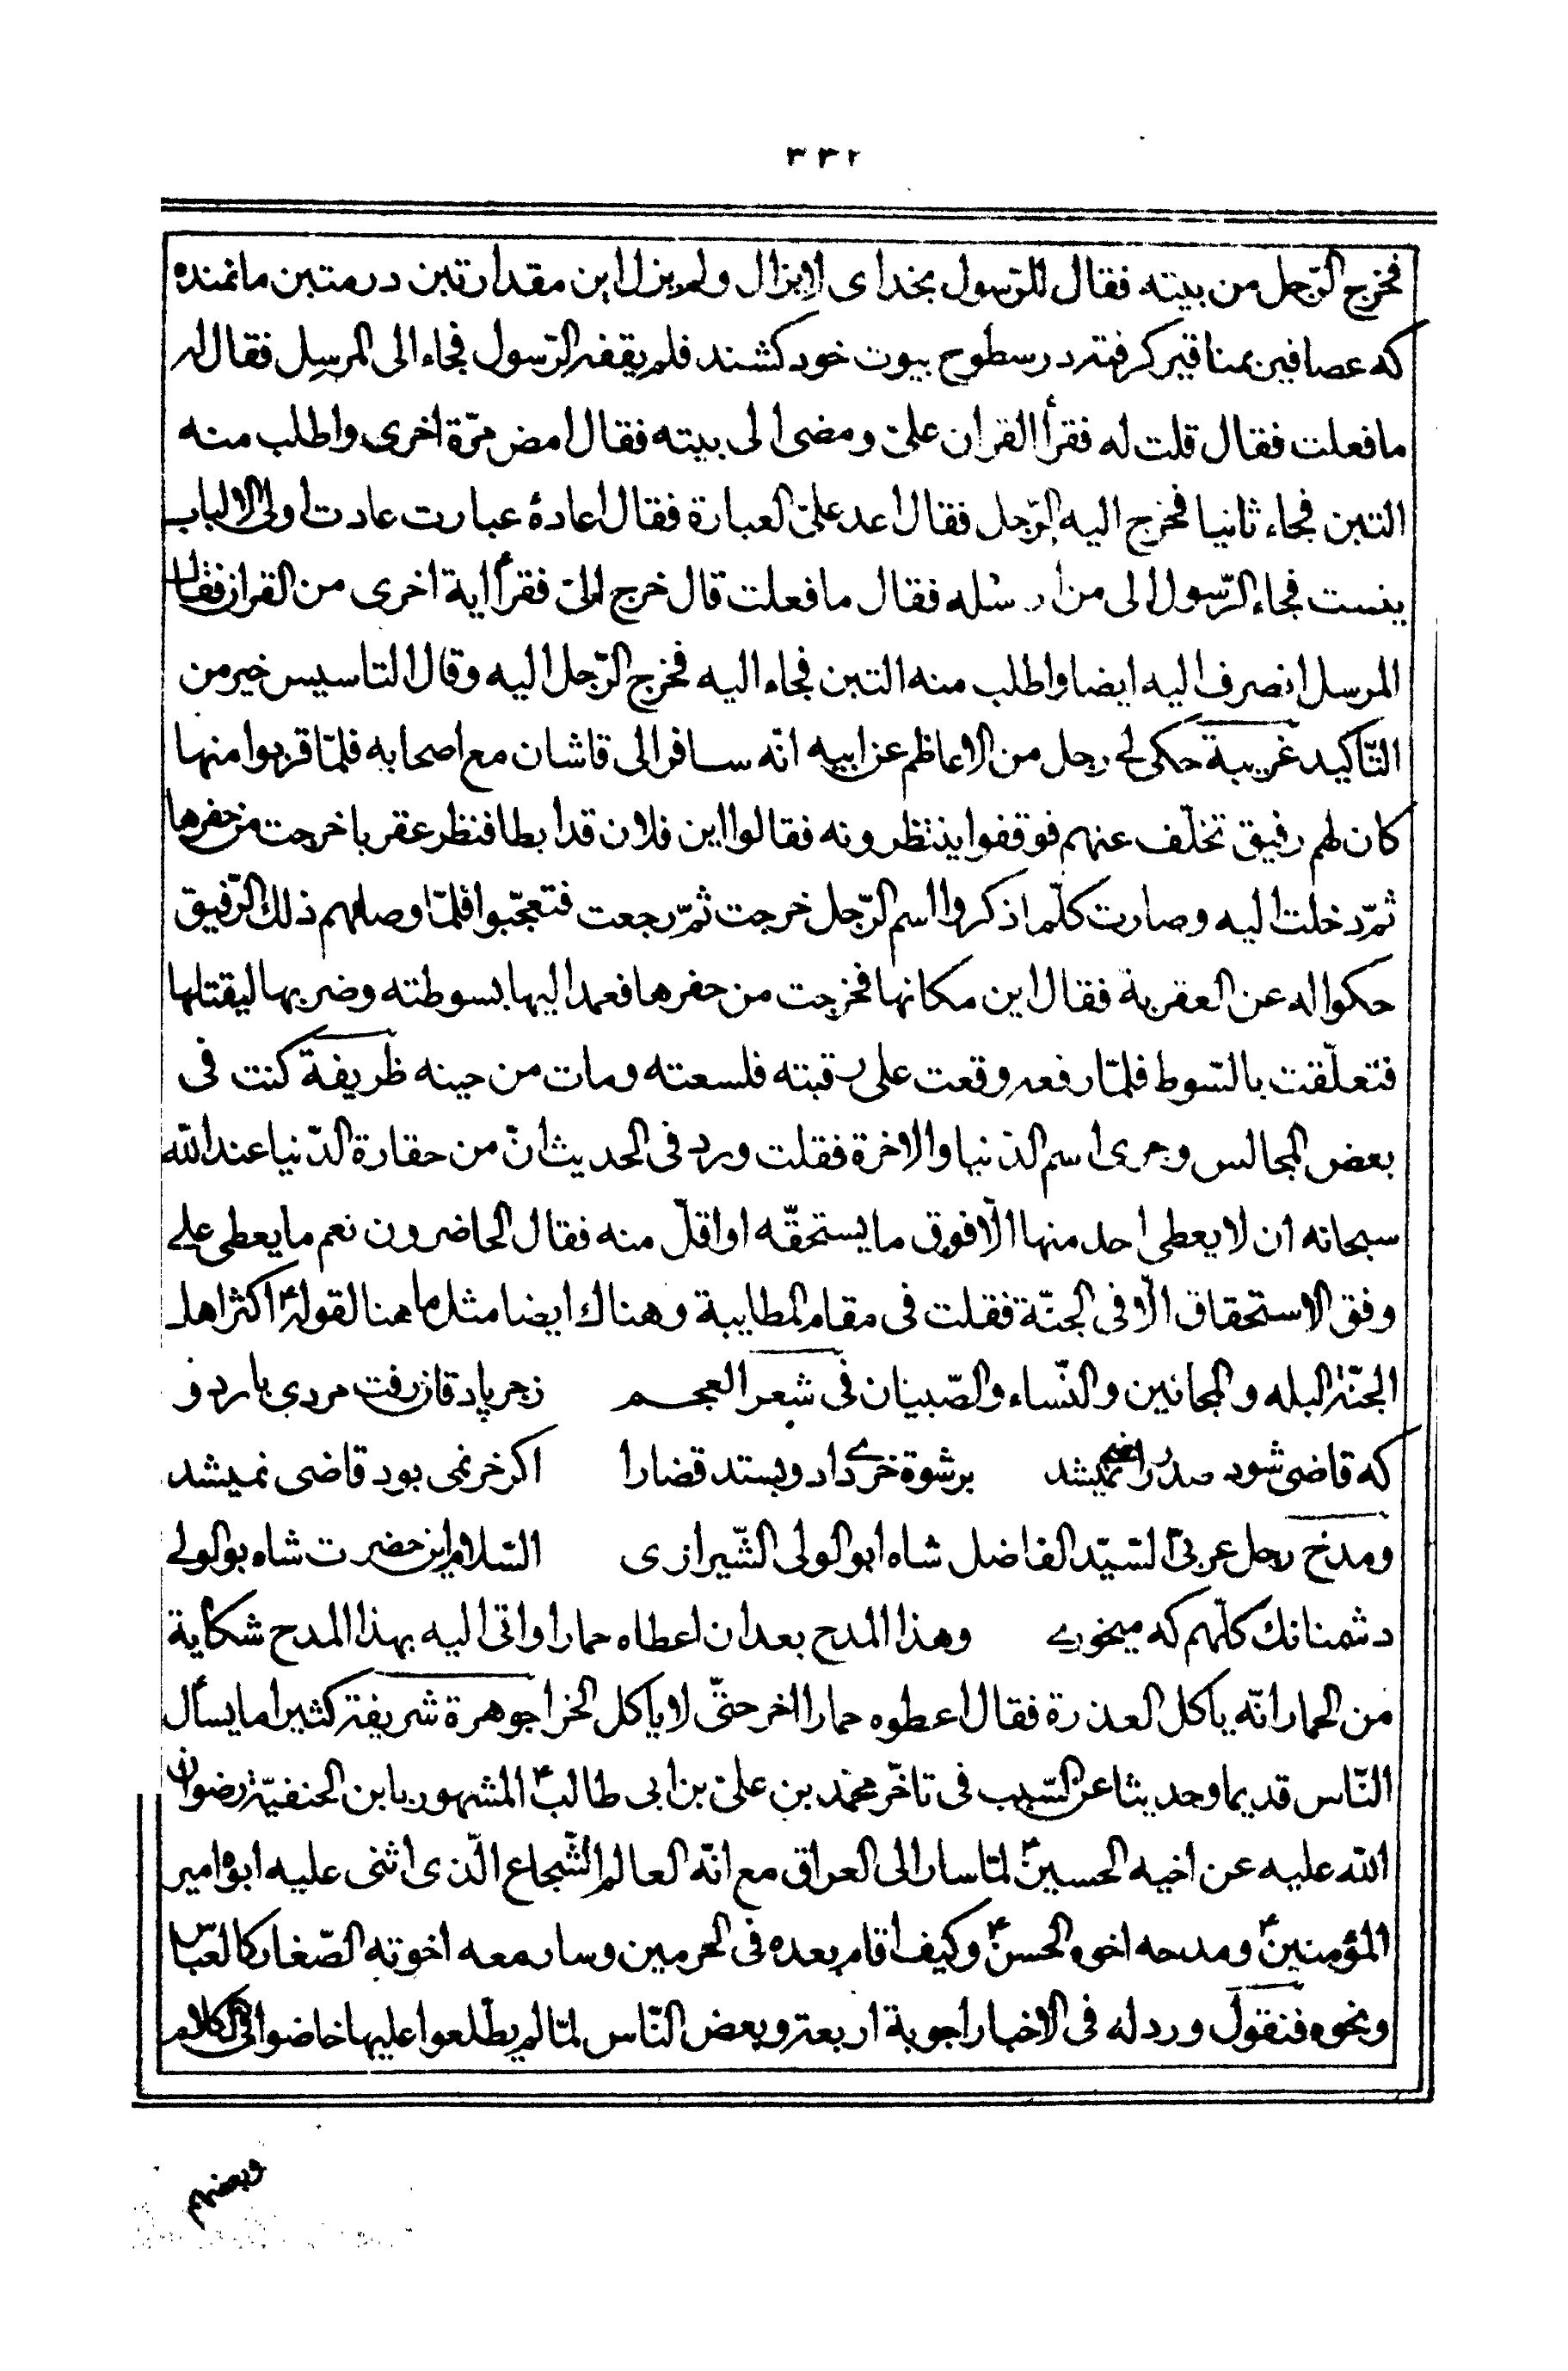 ٣٣٢
فخرج الرّجل من بيته فقال للرّسول بخداى لايزال ولم يزل اين مقدار تبن در متبن ما نمنده
كه عصافير بمناقير كرفته در سطوح بيوت خود كشند فلم يفقه الرّسول فجاء الى المرسل فقال له
ما فعلت فقال قلت له فقرأ القران علىّ ومضى الى بيته فقال امض مرّة اخرى واطلب منه
التبن فجاء ثانيا فخرج اليه الرّجل فقال اعد علىّ العبارة فقال اعادهٔ عبارت عادت اولى الالباب
ينست فجاء الرّسول الى من ارسله فقال ما فعلت قال خرج الىّ فقرأ اية اخرى من القران فقال
المرسل انصرف اليه ايضا واطلب منه التبن فجاء اليه فخرج الرّجل اليه وقال التاسيس خير من
التّاكيد غريبة حكى لى رجل من الاعاظم عن ابيه انّه سافر الى قاشان مع اصحابه فلمّا قربوا منها
كان لهم رفيق تخلّف عنهم فوقفوا ينتظرونه فقالوا اين فلان قد ابطا فنظر عقربا خرجت من حفرها
ثمّ دخلت اليه وصارت كلّما ذكروا اسم الرّجل خرجت ثمّ رجعت فتعجّبوا فلمّا وصلهم ذلك الرّفيق
حكوا له عن العقربة فقال اين مكانها فخرجت من حفرها فعمد اليها بسوطته وضربها ليقتلها
فتعلّقت بالسّوط فلمّا رفعه وقعت على رقبته فلسعته ومات من حينه ظريفة كنت فى
بعض المجالس وجرى اسم الدّنيا والاخرة فقلت ورد فى الحديث انّ من حقارة الدّنيا عند الله
سبحانه ان لا يعطى احد منها الّا فوق ما يستحقّه او اقلّ منه فقال الحاضرون نعم ما يعطى على
وفق الاستحقاق الّا فى الجنّة فقلت فى مقام المطايبة وهناك ايضا مثل ما هنا لقوله ع اكثر اهل
الجنّة البله والمجانين والنّساء والصّبيان فى شعر العجم زجر پادقاز رفت مردى باردو
كه قاضى شود صدر راضى نميشد برشوة خرى داد وبستد قضارا اكر خر نمى بود قاضى نميشد
ومدح رجل عربىّ السّيّد الفاضل شاه ابو الولى الشّيرازى السّلام اين حضرت شاه بو الولى
دشمنانك كلّهم كه ميخورى وهذا المدح بعد ان اعطاه حمارا واتى اليه بهذا المدح شكاية
من الحمار انّه ياكل العذرة فقال اعطوه حمارا اخر حتّى لا ياكل الخرا جوهرة شريفة كثيرا ما يسأل
النّاس قديما وحديثا عن السّبب فى تاخّر محمّد بن علىّ بن ابى طالب ع المشهور بابن الحنفيّة رضوان
الله عليه عن اخيه الحسين ع لمّا سار الى العراق مع انّه العالم الشّجاع الّذى اثنى عليه ابوه امير
المؤمنين ع ومدحه اخوه الحسن ع وكيف اقام بعده فى الحرمين وسار معه اخوته الصّغار كالعبّاس
ونحوه فنقول ورد له فى الاخبار اجوبة اربعة وبعض النّاس لمّا لم يطّلعوا عليها خاضوا فى الكلام
وبعضهم